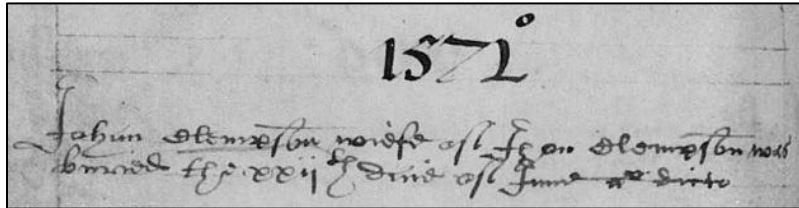 1571º
Johan Clempson wiefe of Jhon Clempson was
buried the xxiith daie of June aº dicto